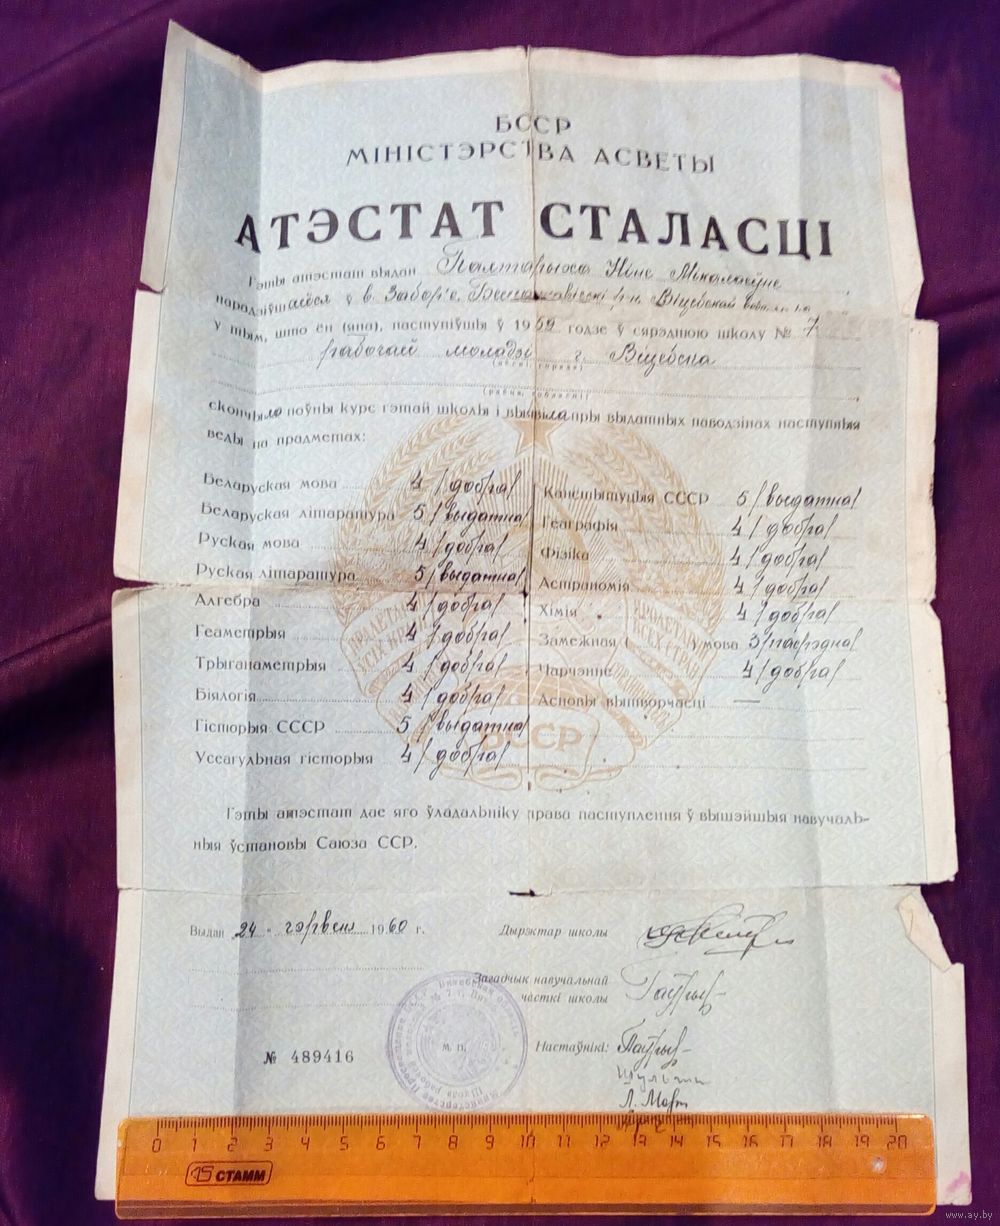 БССР
МІНІСТЭРСТВА АСВЕТЫ
АТЭСТАТ СТАЛАСЦІ
Гэты атэстат выдан Ніне Мікалаеўне
нарадзіўшаёся ў в. Забор'е Віцебскай
у тым, што ён (яна), паступіўшы ў 1959 годзе ў сярэднюю школу № 7
рабочай моладзі г. Віцебска
скончыла поўны курс гэтай школы і выявіла пры выдатных паводзінах наступныя
веды па прадметах:
Беларуская мова 4 / добра /
Беларуская літаратура 5 / выдатна /
Руская мова 4 / добра /
Руская літаратура 5 / выдатна /
Алгебра 4 / добра /
Геаметрыя 4 / добра /
Трыганаметрыя 4 / добра /
Біялогія 4 / добра /
Гісторыя СССР 5 / выдатна /
Усеагульная гісторыя 4 / добра /
Канстытуцыя СССР 5 / выдатна /
Геаграфія 4 / добра /
Фізіка 4 / добра /
Астраномія 4 / добра /
Хімія 4 / добра /
Замежная ( ) мова 3 / пасрэдна /
Чарчэнне 4 / добра /
Асновы вытворчасці —
БССР
Гэты атэстат дае яго ўладальніку права паступлення ў вышэйшыя навучаль-
ныя ўстановы Саюза ССР.
Выдан 24 " чэрвеня 1960 г.
Дырэктар школы
Загадчык навучальнай
часткі школы
Настаўнікі:
М. П.
№ 489416
0 1 2 3 4 5 6 7 8 9 10 11 12 13 14 15 16 17 18 19 20
15 СТАММ
www.ay.by